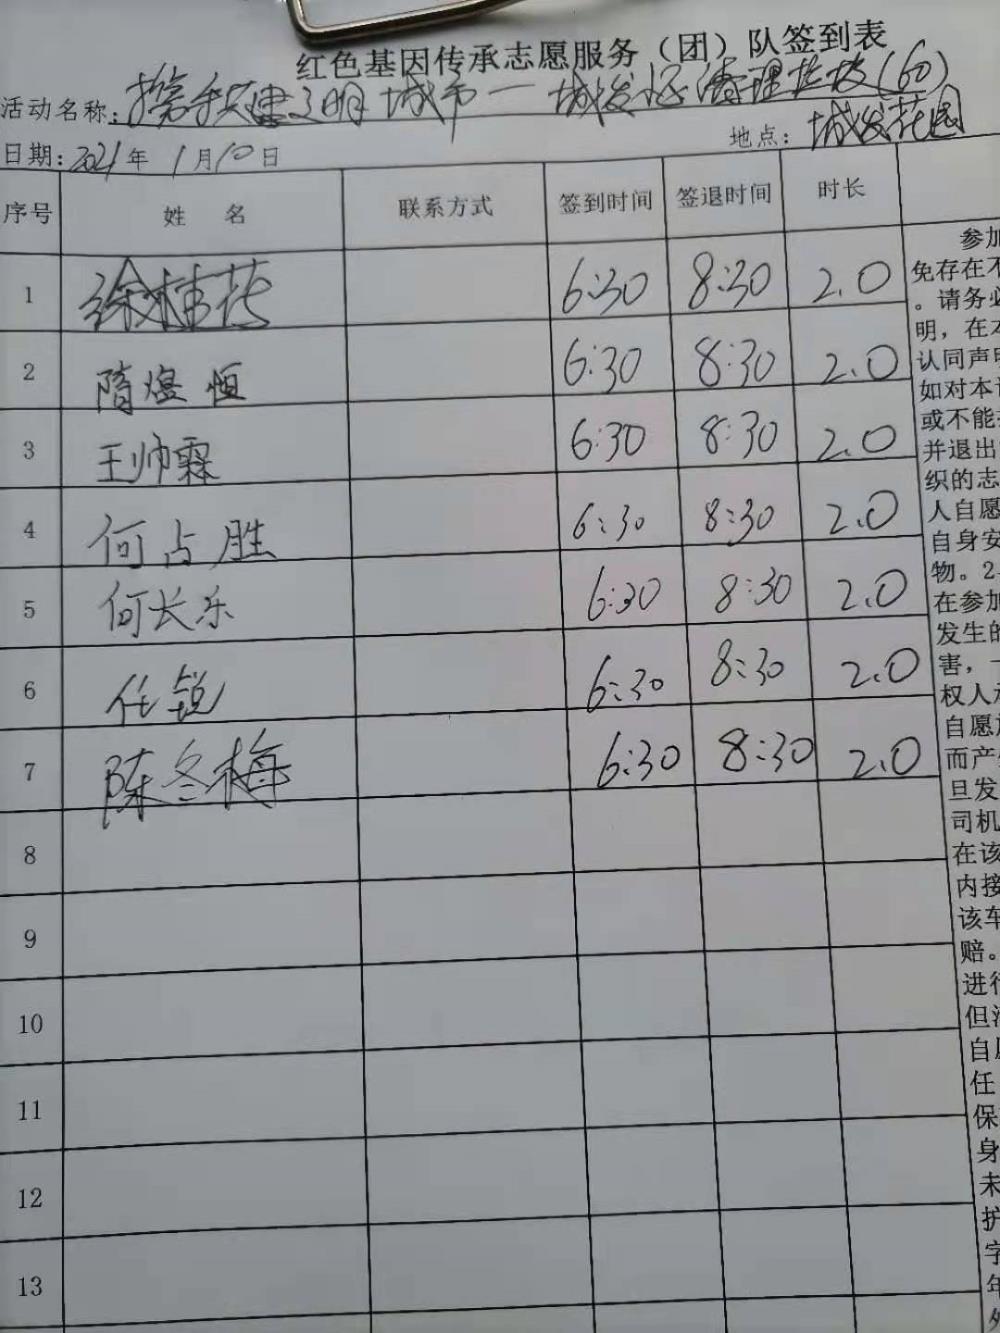 红色基因传承志愿服务（团）队签到表
活动名称：携手共建文明城市一城发 清理垃圾(60)
日期：2021年1月10日 地点：城发花园
序号 姓名 联系方式 签到时间 签退时间 时长
1 徐桂 6:30 8:30 2.0
2 隋煜恒 6:30 8:30 2.0
3 王帅霖 6:30 8:30 2.0
4 何占胜 6:30 8:30 2.0
5 何长乐 6:30 8:30 2.0
6 任锐 6:30 8:30 2.0
7 陈冬梅 6:30 8:30 2.0
8
9
10
11
12
13
参加
免存在不
。请务必
明，在本
认同声明
如对本
或不能
并退出
织的志
人自愿
自身安
物。2
在参加
发生的
害，一
权人
自愿
而产
旦发
司机
在该
内接
该车
赔。
进行
但
自愿
任
保
身
未
护
字
年